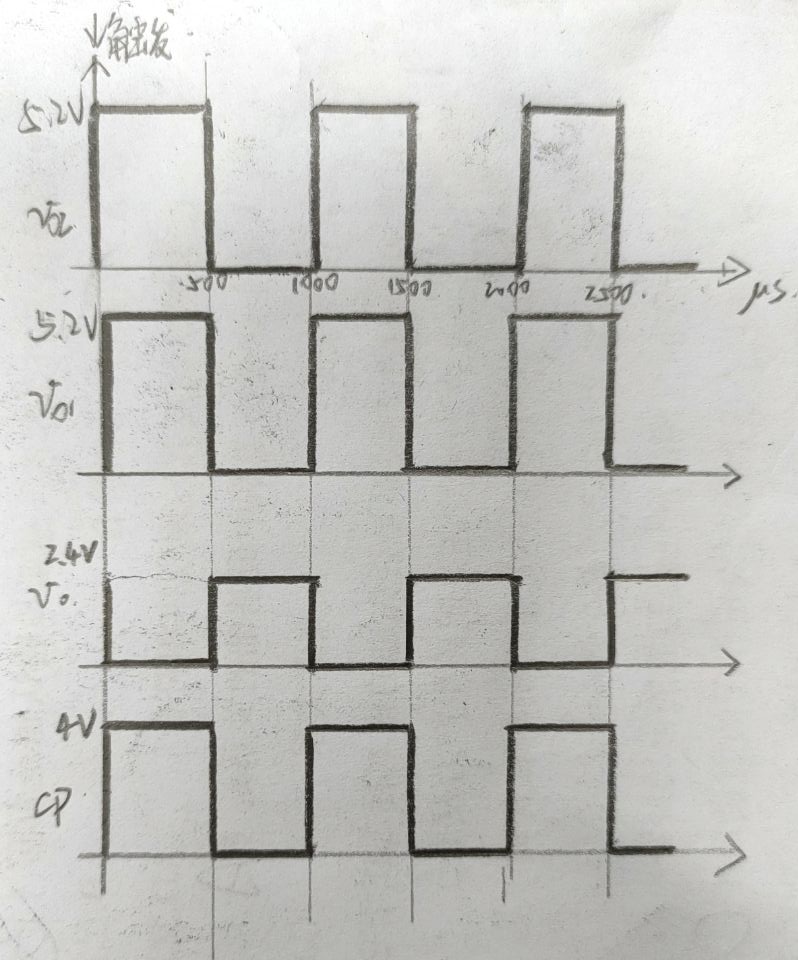 ↓触发
5.2V
V02
500 1000 1500 2000 2500 μs.
5.2V
V01
2.4V
V0.
4V
CP